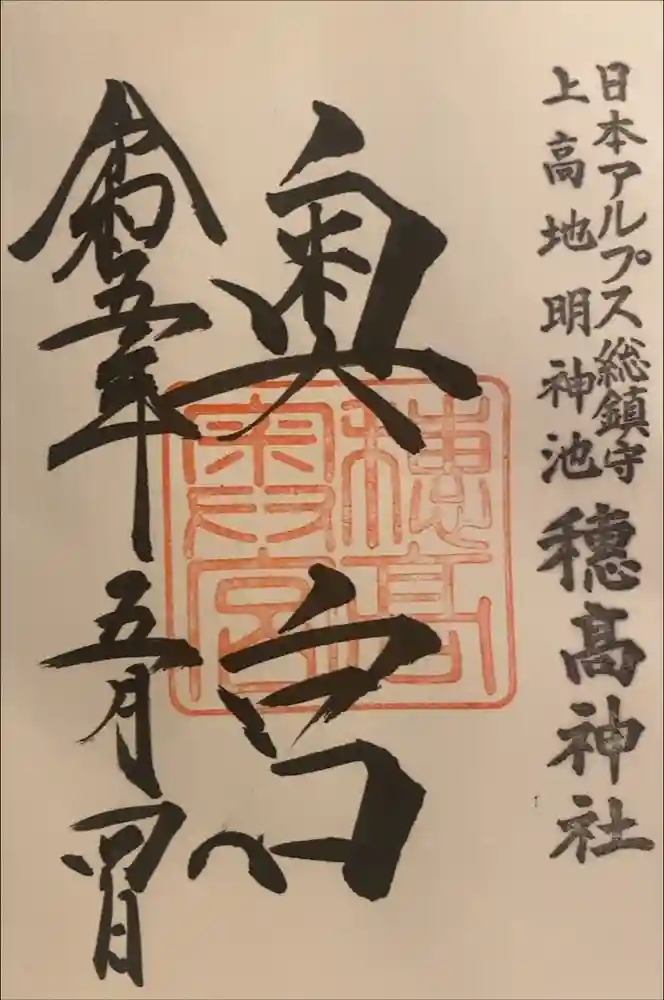 日本アルプス総鎮守
上高地明神池
穂髙神社
奥宮
穂高
奥宮
令和五年五月四日